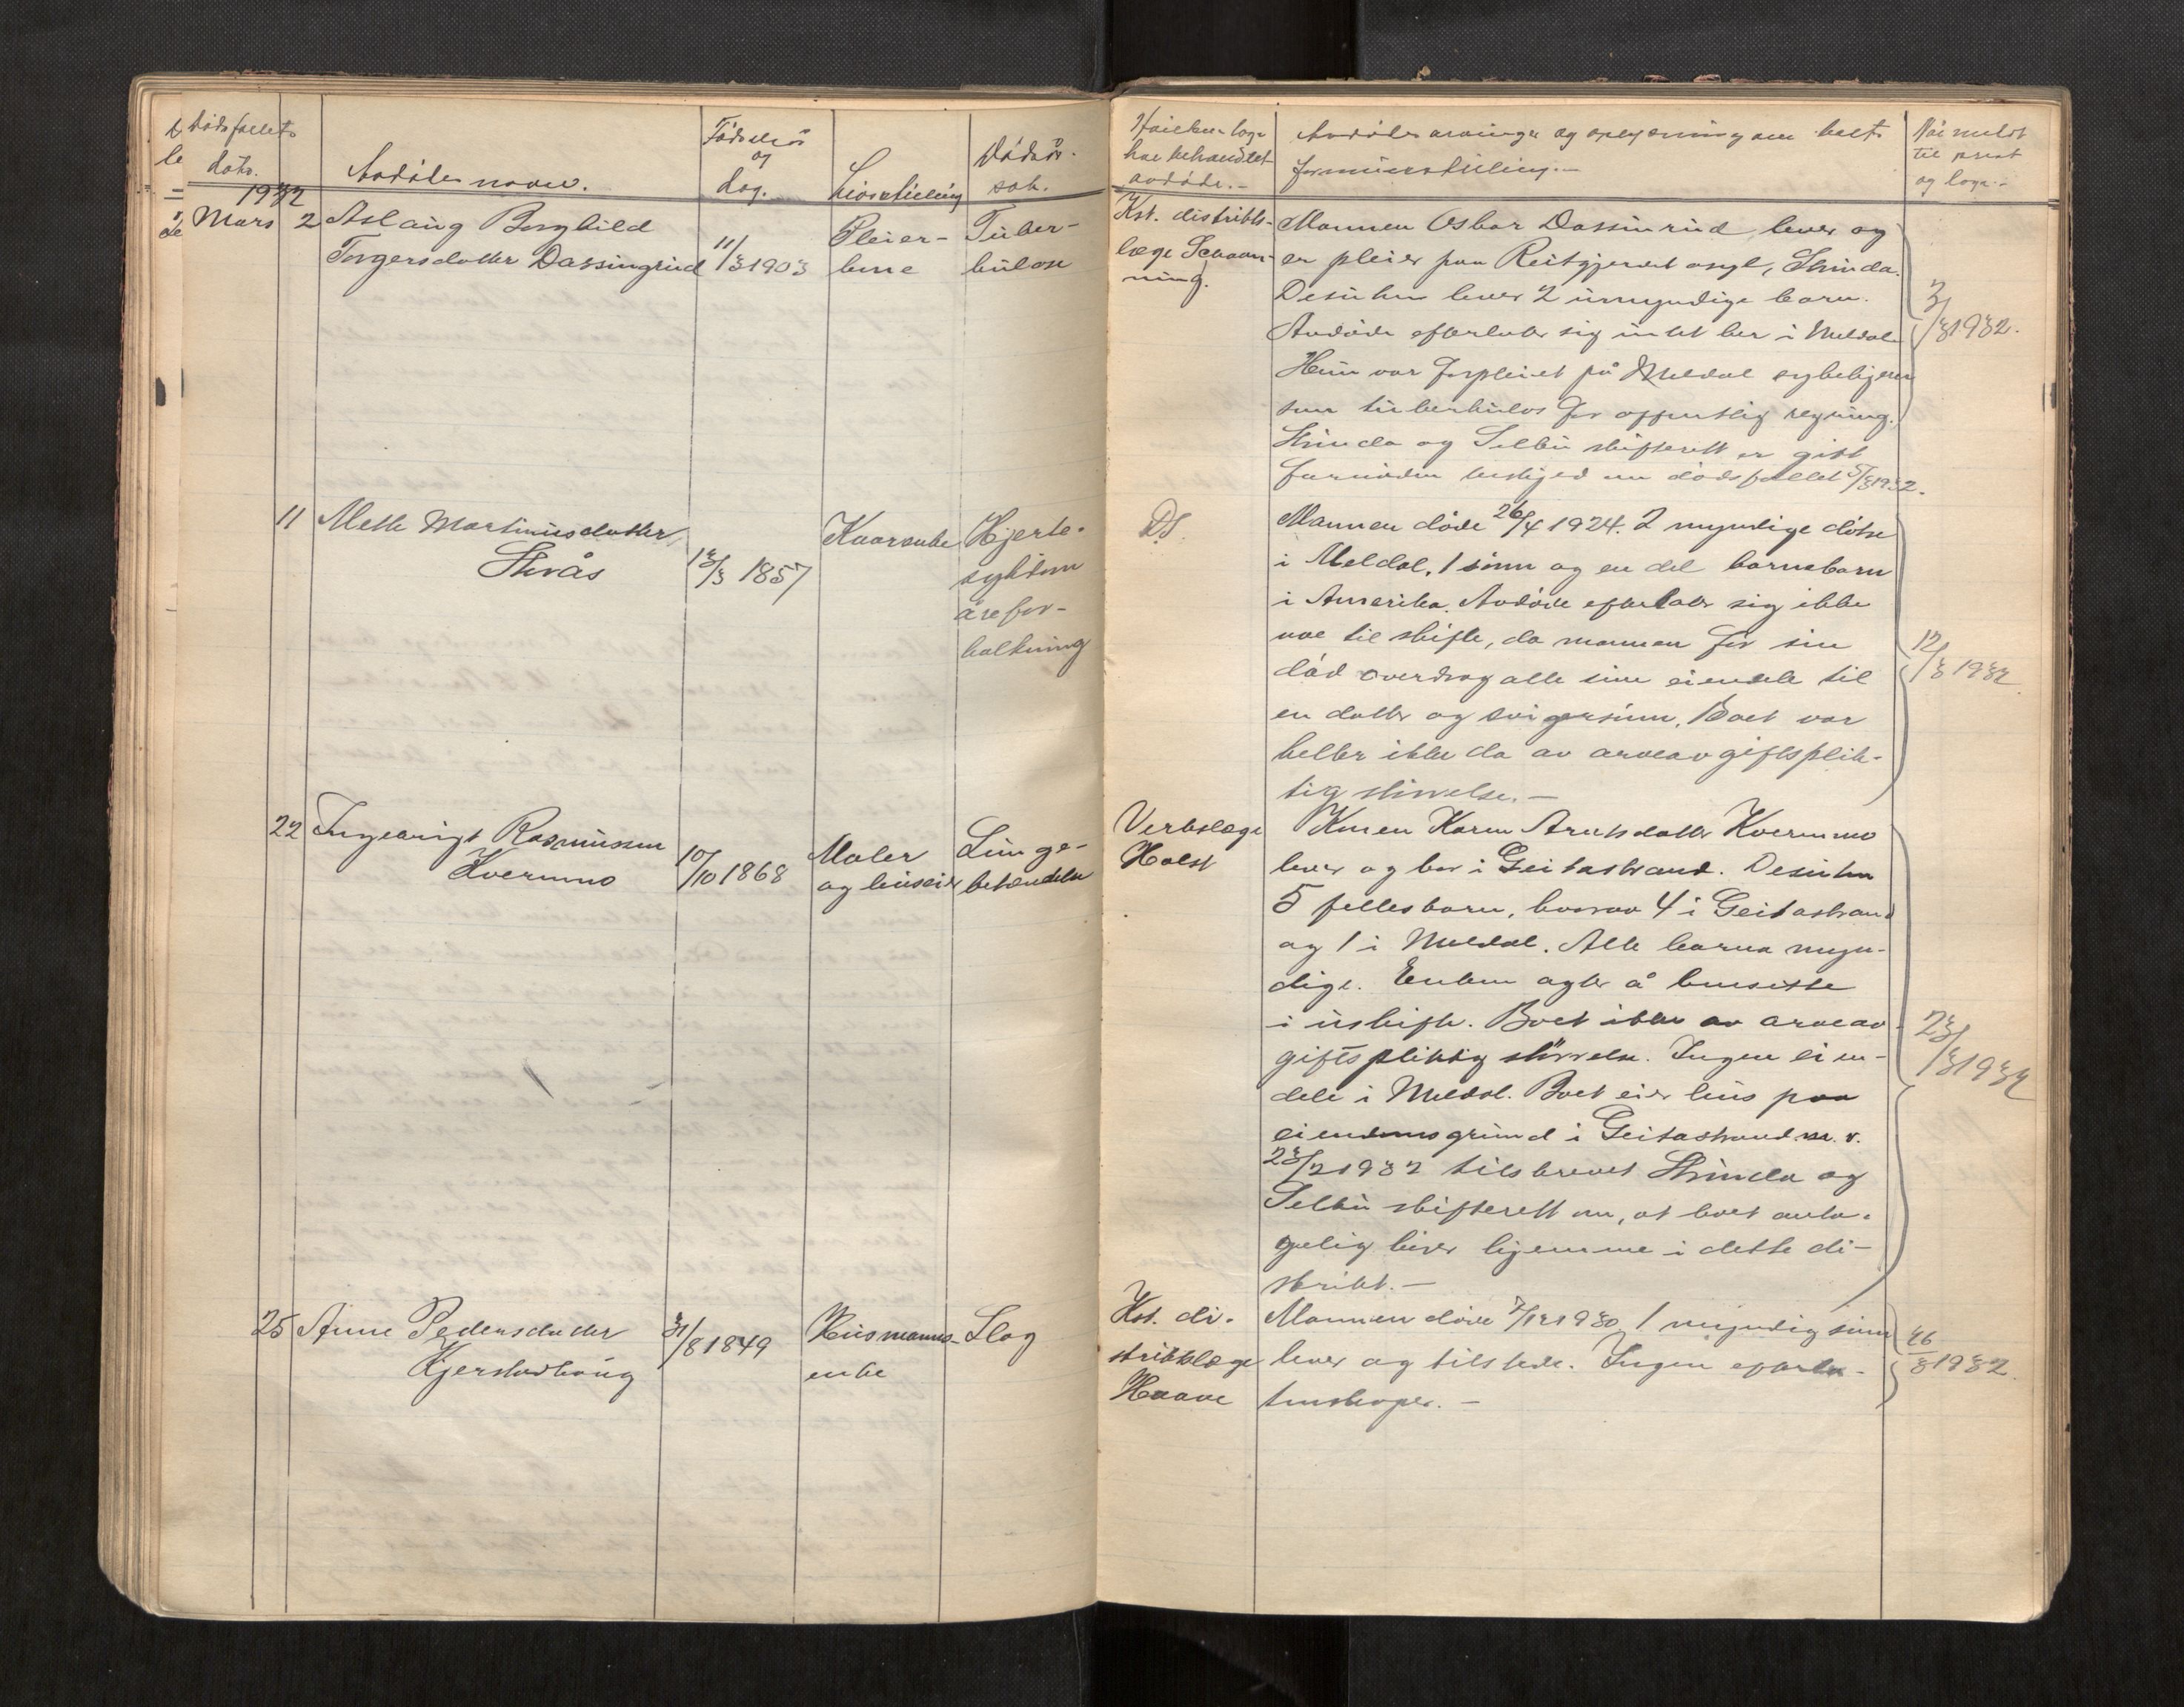 Dødsfallets
dato.
Avdødes navn.
Fødselsår
og
dag.
Livsstilling
Dødsår-
sak.
1932
Mars 2 Aslaug Borghild
Torgersdatter Dassingrud
11/3 1903
Pleier-
herre
Tuber-
kulose
11 Mette Martinusdatter
Skrås
13/3 1857
Kaarenke
Hjerte-
sykdom
årefor-
kalkning
22 Ingebrigt Rasmussen
Kvernmo
10/10 1868
Maler
og huseier
Lunge-
betændelse
25 Anne Pedersdatter
Kjerstadhaug
31/8 1849
Husmanns-
enke
Slag
Hvilken læge
har behandlet
avdøde.-
Avdødes arvinger og oplysning om boets
formuesstilling.-
Når meldt
til prest
og læge.-
Kst. distrikts-
læge Schaan-
ning.
Mannen Oskar Dassinrud, lever og
er pleier paa Reitgjerdet asyl, Strinda.
Desuten lever 2 umyndige barn.
Avdøde efterlater sig intet her i Meldal.
Hun var forpleiet på Meldal sykehjem
som tuberkulos for offentlig regning.
Strinda og Selbu skifterett er gitt
fornøden beskjed om dødsfallet 5/3 1932.
3/3 1932.
Ds.
Mannen døde 26/4 1924. 2 myndige døtre
i Meldal, 1 sønn og en del barnebarn
i Amerika. Avdøde efterlater sig ikke
noe til skifte, da mannen før sin
død overdrog alle sine eiendele til
en datter og svigersønn. Boet var
heller ikke da av arveavgiftsplik-
tig størrelse.-
12/3 1932
Verkslæge
Holst
Konen Karen Arntsdatter Kvernmo
lever og bor i Geitastrand. Desuten
5 fellesbarn, hvorav 4 i Geitastrand
og 1 i Meldal. Alle barna myn-
dige. Enken agter å hensitte
i uskifte. Boet ikke av arveav-
giftspliktig størrelse. Ingen eien-
dele i Meldal. Boet eier hus paa
eiendomsgrund i Geitastrand m. v.
23/3 1932 tilskrevet Strinda og
Selbu skifterett om, at boet anta-
gelig hører hjemme i dette di-
strikt.-
23/3 1932
Kst. di-
striktslæge
Haave
Mannen døde 7/12 1930. 1 myndig sønn
lever og tilstede. Ingen efterla-
tenskaper.-
26/3 1932.